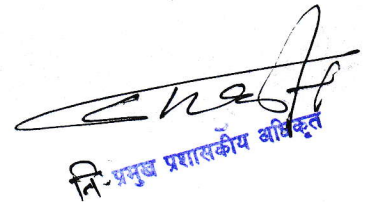 नि-प्रमुख प्रशासकीय अधिकृत